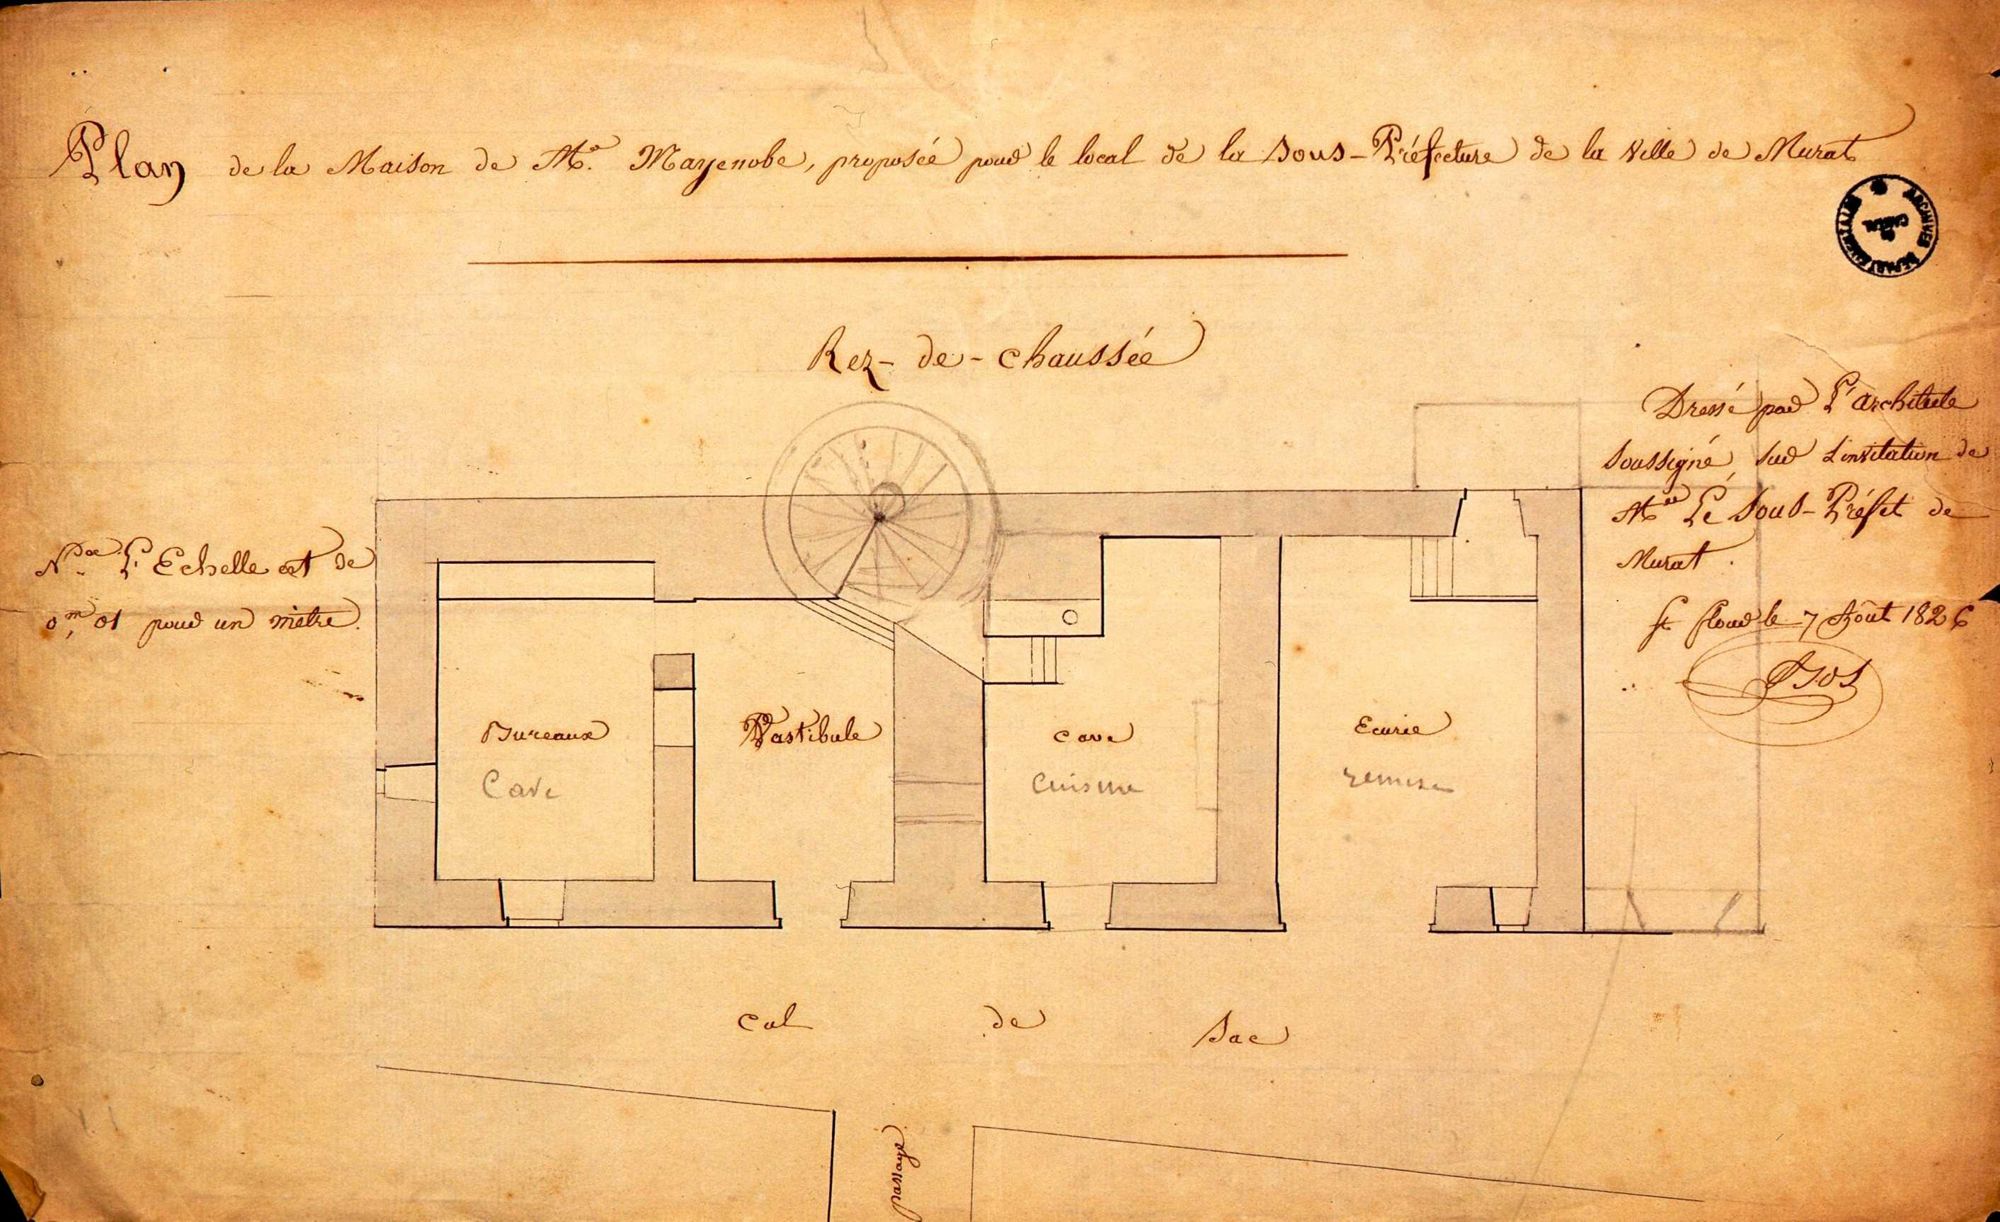 Plan de la Maison de Mr. Mayenobe, proposée pour le local de la Sous-Préfecture de la Ville de Murat
ARCHIVES DEPARTEMENTALES
DU
CANTAL
Rez-de-chaussée
Dressé par L'architecte
soussigné, sur L'invitation de
Mr Le Sous-Préfet de
Murat.
St flour le 7 Août 1826
Nta L'Echelle est de
0m, 01 pour un mètre.
Bureaux
Vastibule
cave
Ecurie
Cave
Cuisine
remise
Cul de Sac
passage